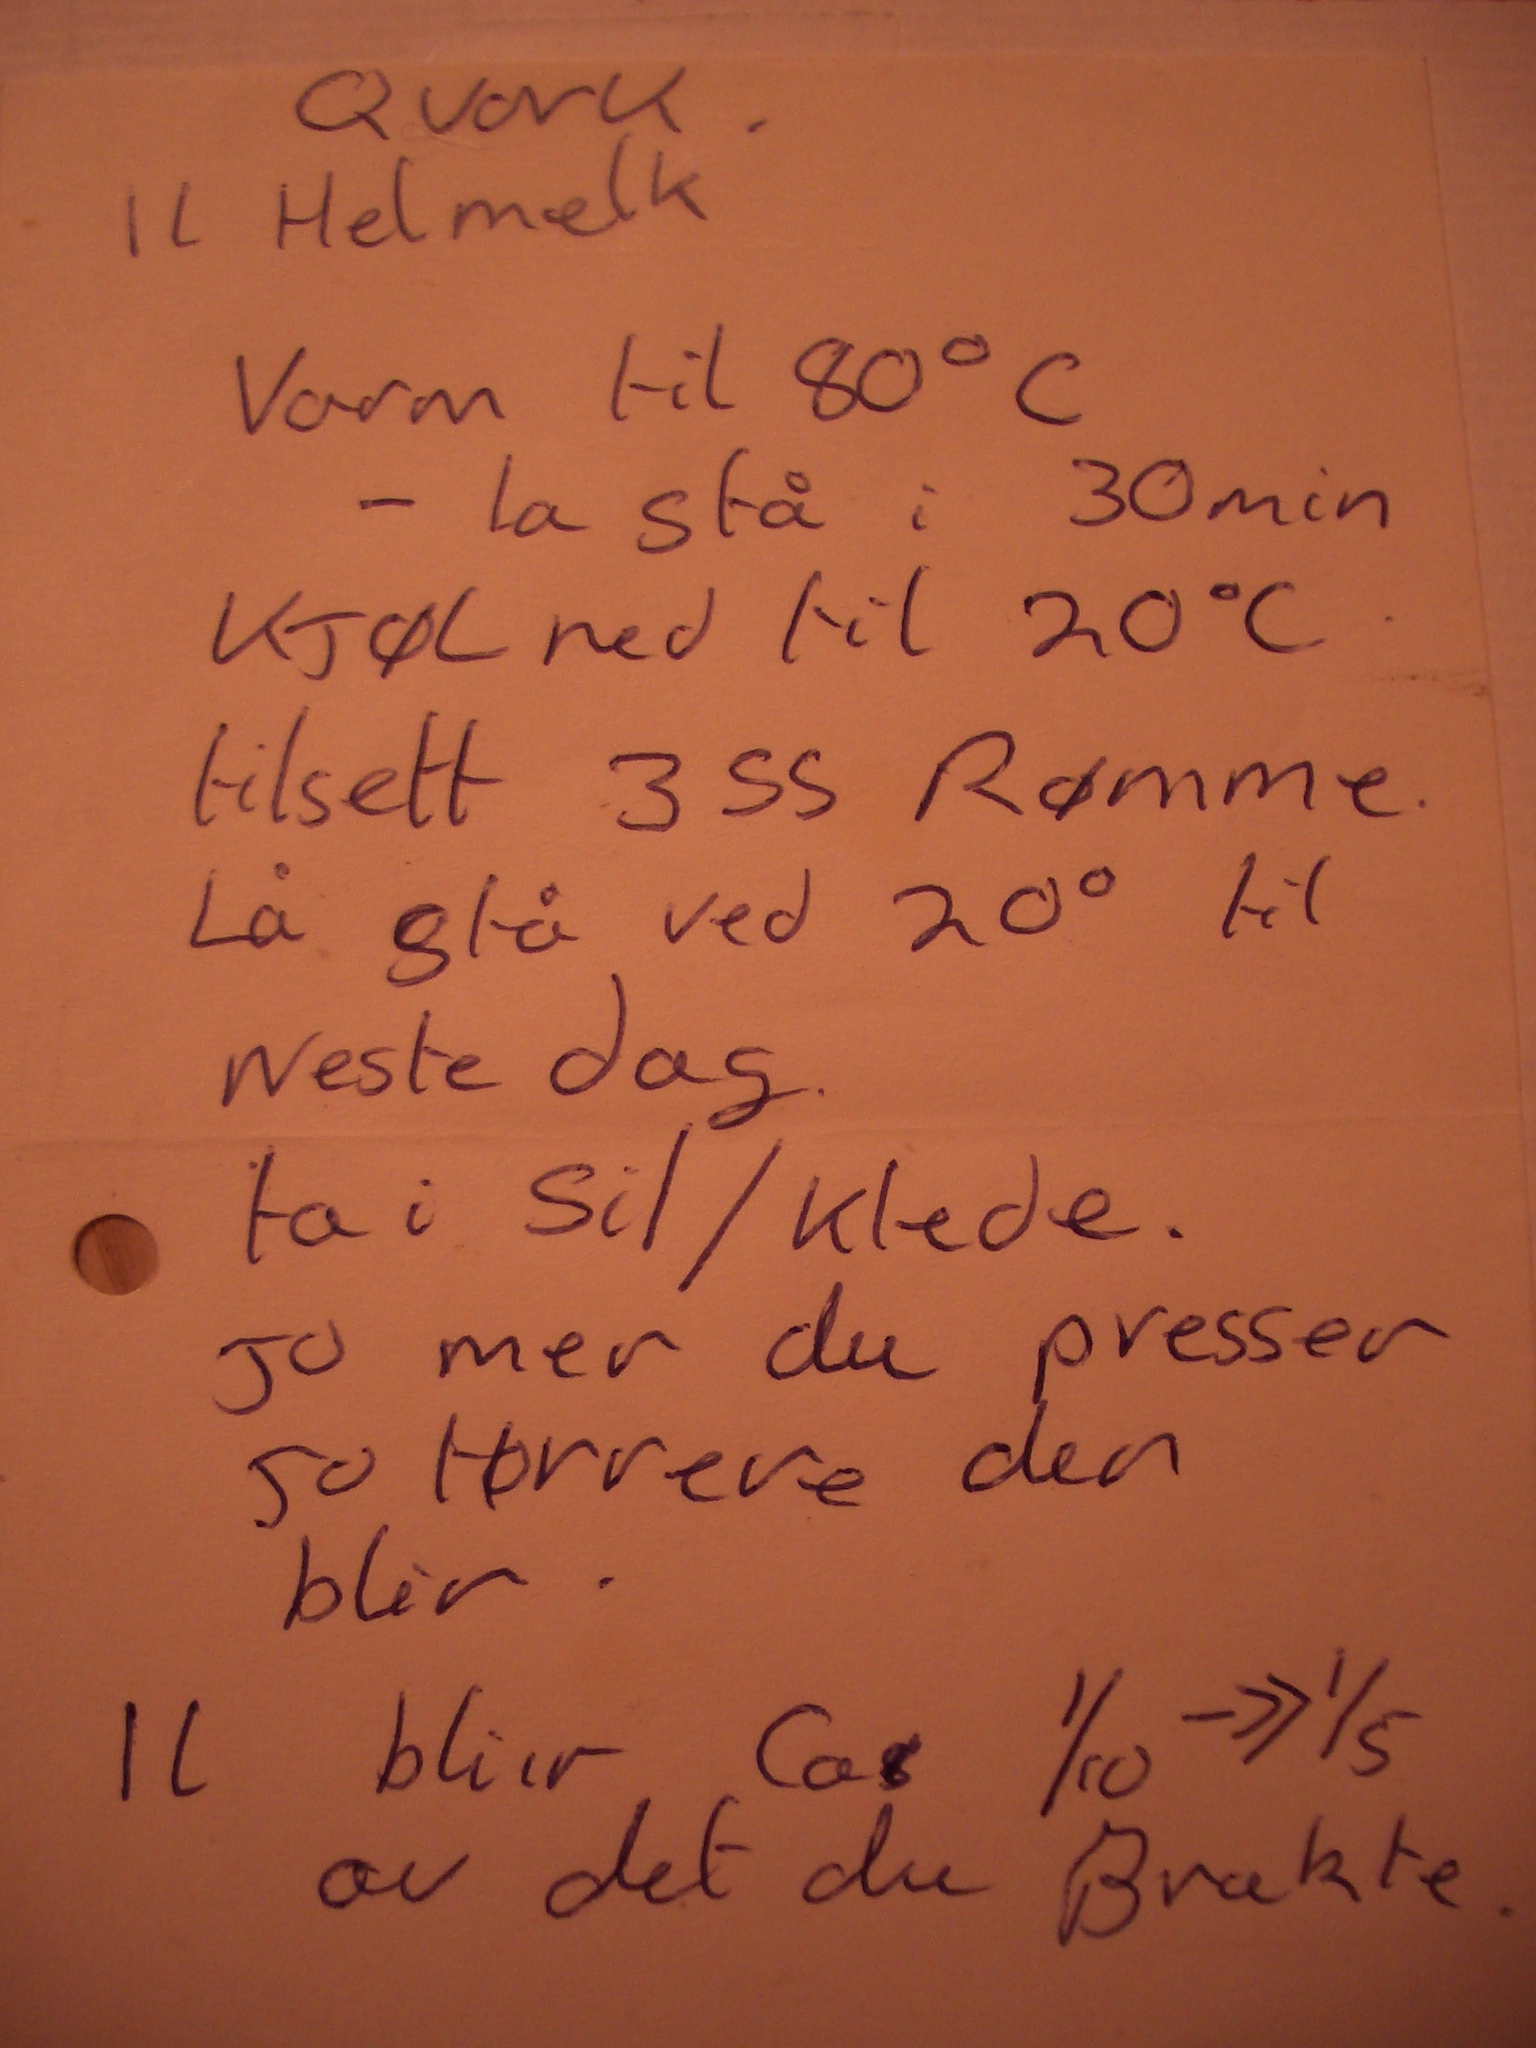 Qvark.
1l Helmælk
Varm til 80°C
- la stå i 30min
KJØL ned til 20°C.
tilsett 3 SS Rømme.
Lå stå ved 20° til
Neste dag.
ta i Sil/klede.
jo mer du presser
jo tørrere den
blir.
1l bliir Ca 1/10 ->> 1/5
av det du Brukte.